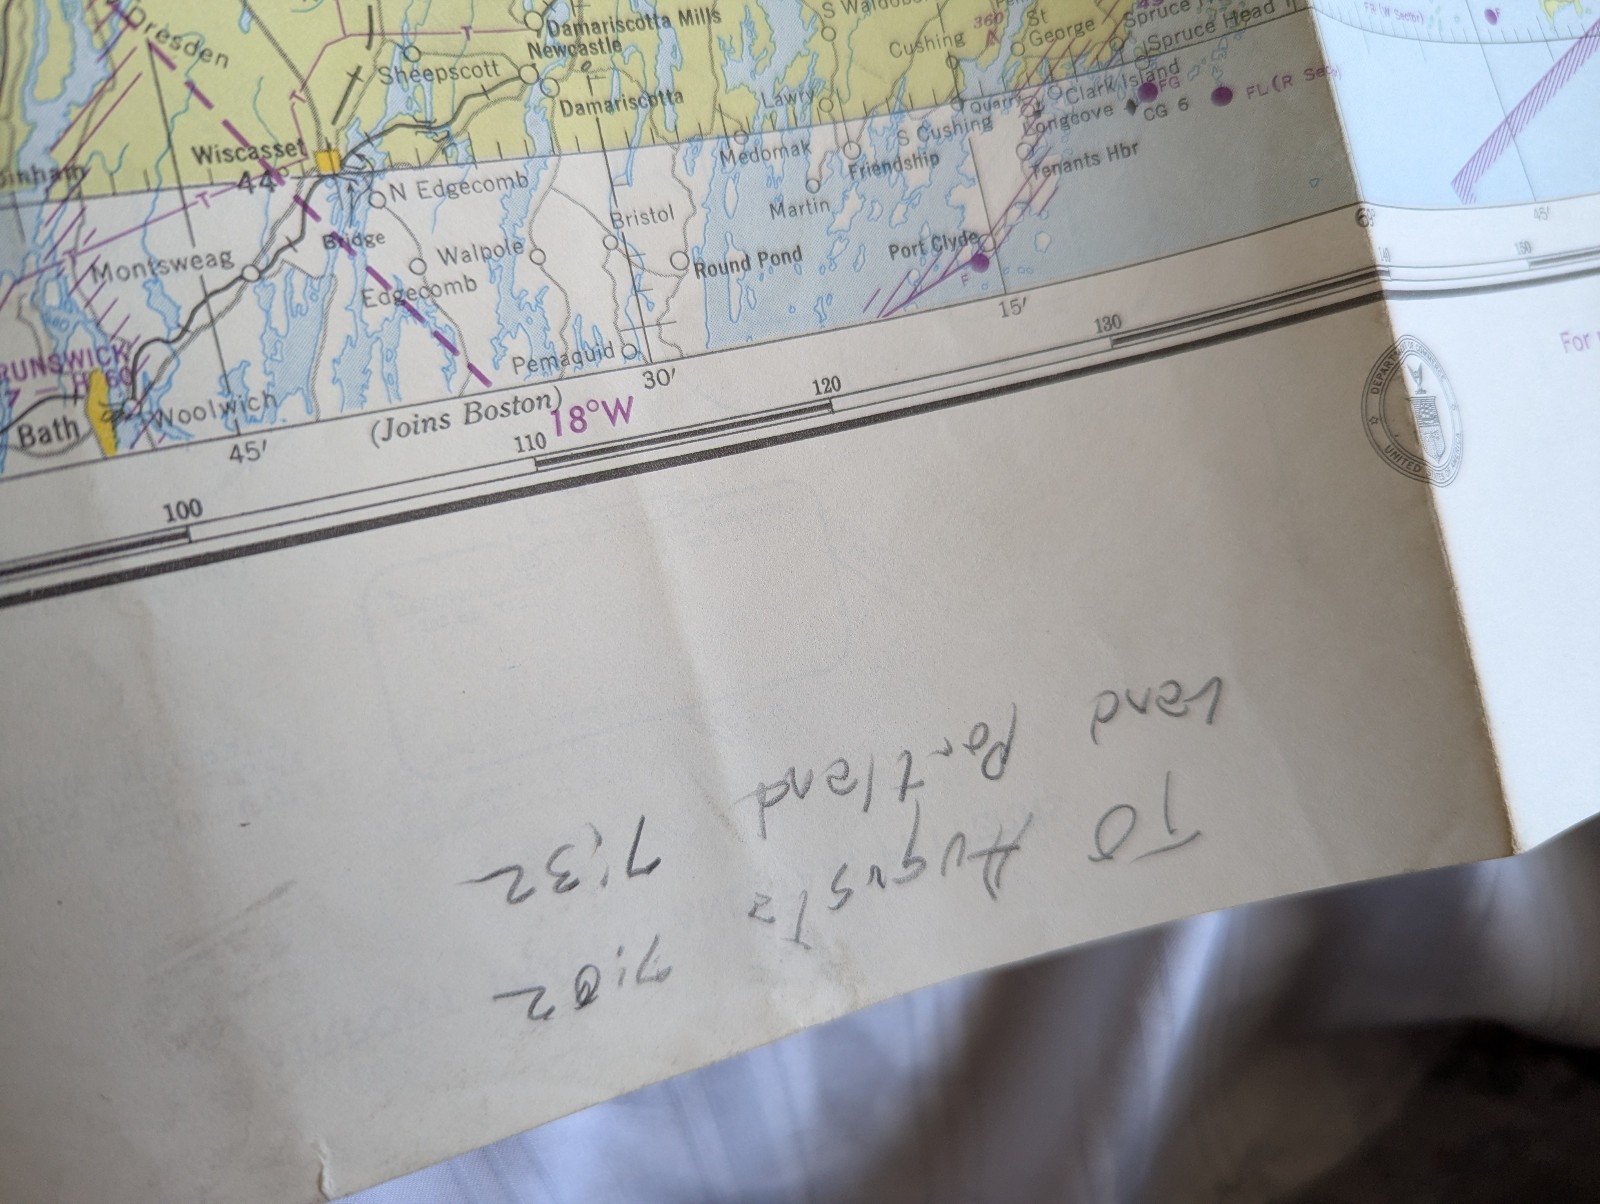 Dresden
Damariscotta Mills
Newcastle
Sheepscott
Damariscotta
S Waldobo
Cushing
360
St
George
Spruce
Spruce Head
Lawry
Quarry
Clark Island
FG
FL(R Sec
S Cushing
Longcove
CG 6
Wiscasset
44°
Medomak
Friendship
Tenants Hbr
N Edgecomb
Martin
Bristol
Bridge
Walpole
Montsweag
Round Pond
Port Clyde
F
Edgecomb
Pemaquid
15'
30'
45'
RUNSWICK
H 60
Bath
Woolwich
(Joins Boston)
18°W
100
110
120
130
140
150
45'
F
For
DEPARTMENT OF COMMERCE
UNITED STATES OF AMERICA
7:02
TO Augusta 7:32
Land Portland